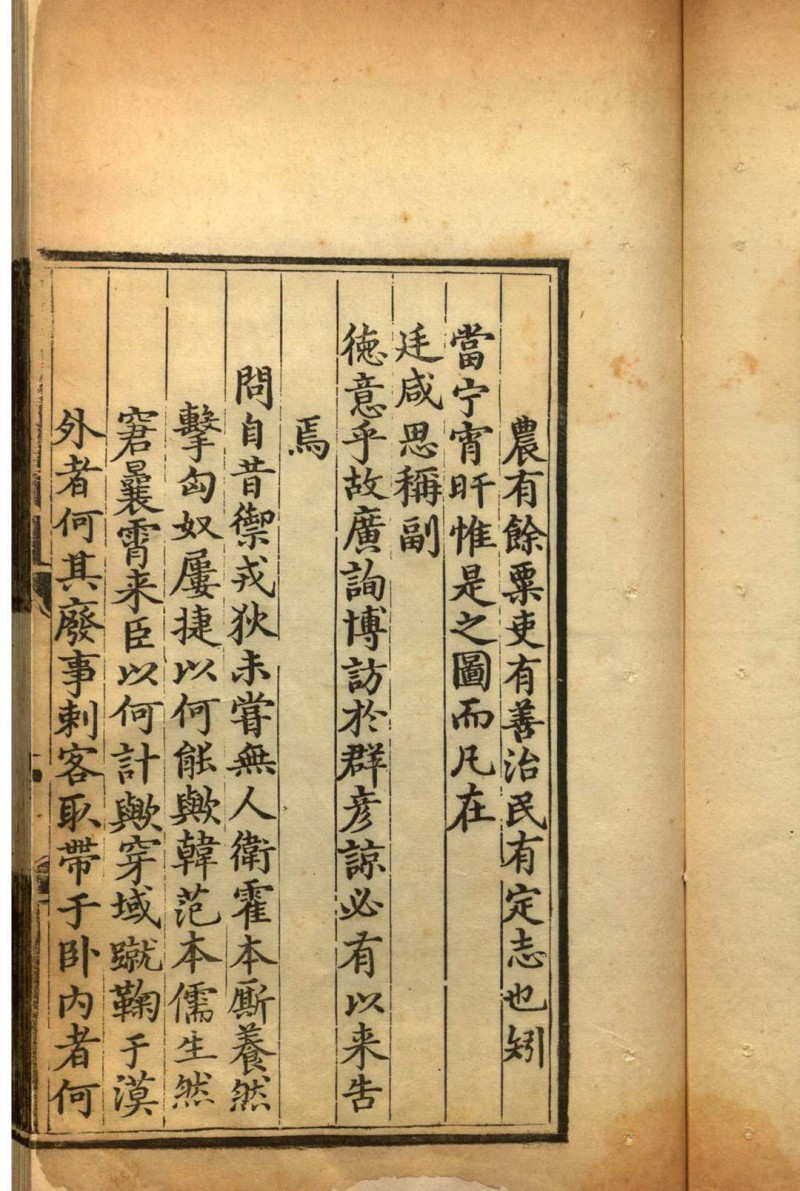 農有餘粟吏有善治民有定志也矧
當宁宵旰惟是之圖而凡在
廷咸思稱副
德意乎故廣詢博訪於群彥諒必有以来告
焉
問自昔禦戎狄未嘗無人衛霍本厮養然
擊匈奴屢捷以何能歟韓范本儒生然
窘曩霄来臣以何計歟穿域蹴鞠于漠
外者何其廢事刺客取帶于卧內者何